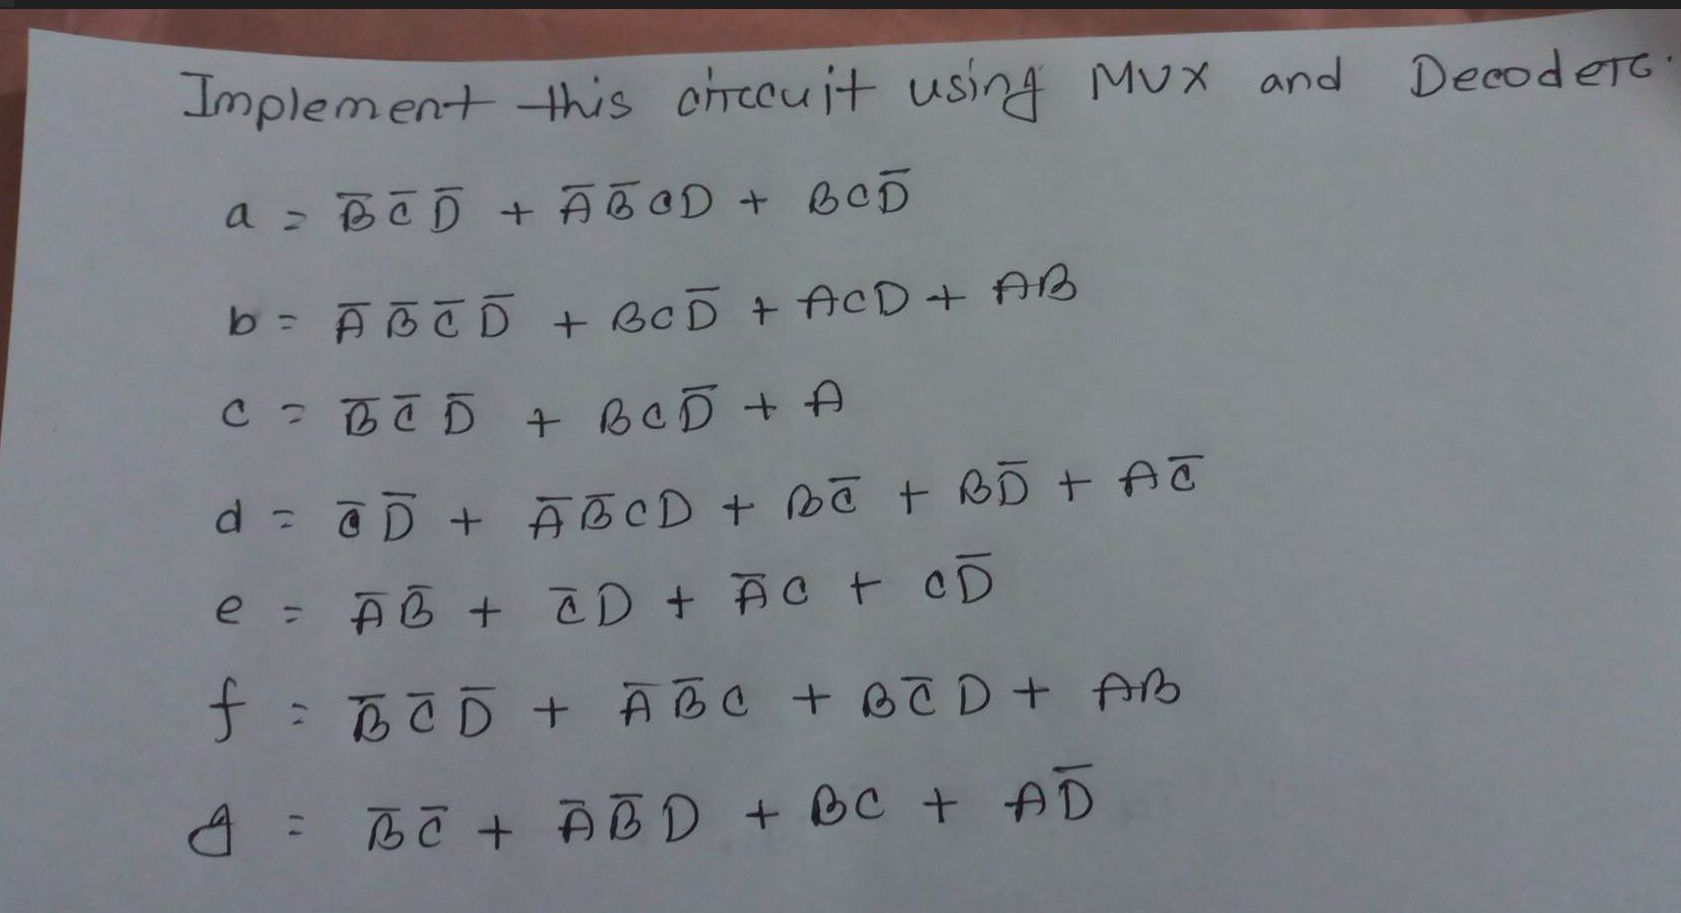 Implement this circuit using MUX and Decoder.
a = B̅ C̅ D̅ + A̅ B̅ C D + B C D̅
b = A̅ B̅ C̅ D̅ + B C D̅ + A C D + A B
c = B̅ C̅ D̅ + B C D̅ + A
d = C̅ D̅ + A̅ B̅ C D + B C̅ + B D̅ + A C̅
e = A̅ B̅ + C̅ D + A̅ C + C D̅
f = B̅ C̅ D̅ + A̅ B̅ C + B C̅ D + A B
g = B̅ C̅ + A̅ B̅ D + B C + A D̅